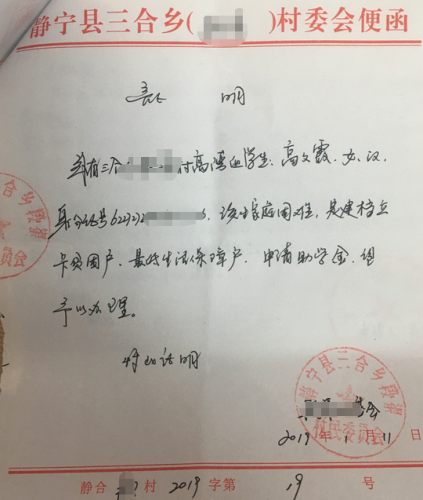 静宁县三合乡( )村委会便函
证 明
兹有三合 村高湾组学生:高文霞、女、汉、
身份证号62272 3。该生家庭困难,是建档立
卡贫困户、最低生活保障户、申请助学金,望
予以办理。
特此证明
委会
2019年1月11日
静宁县三合乡
村民委员会
静合 村2019字第19号